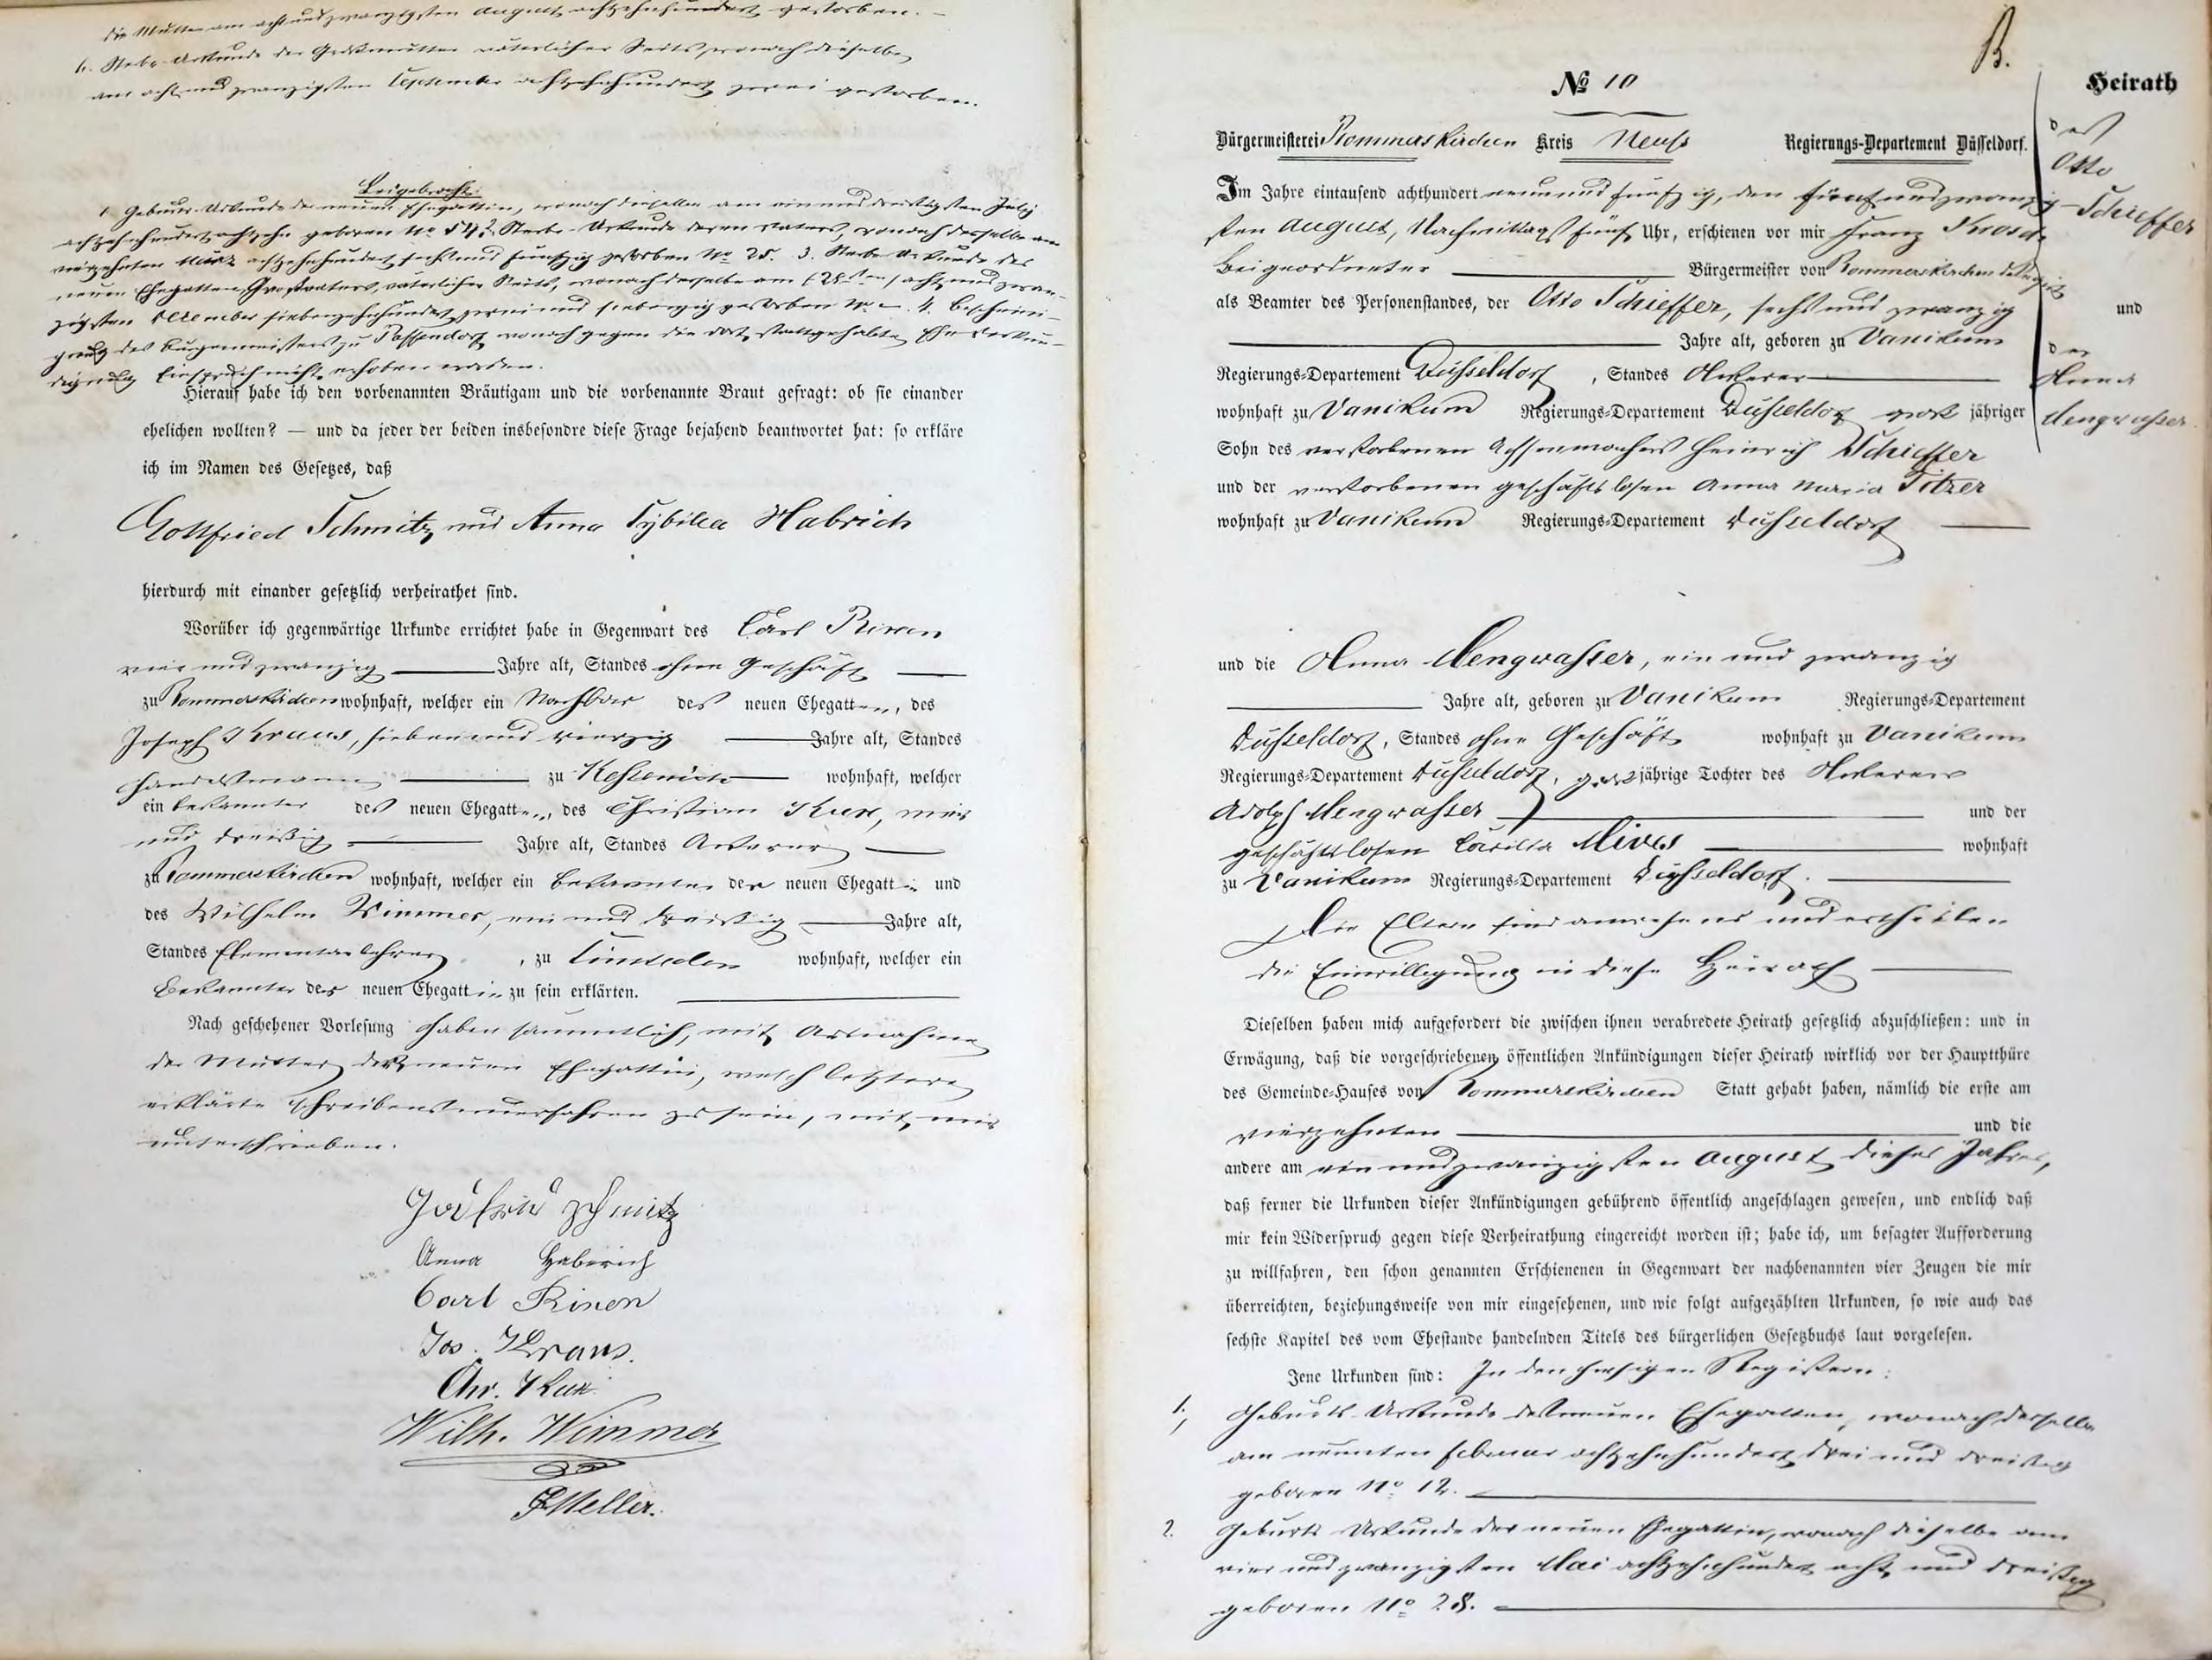 die Mutter am acht und zwanzigsten August achtzehnhundert gestorben. –
6. Sterbe-Urkunde der Großmutter väterlicher Seits, wonach dieselbe
am acht und zwanzigsten September achtzehnhundert zwei gestorben.
Beigebracht:
1. Geburts-Urkunde der neuen Ehegattin, wonach dieselbe am ein und dreißigsten July
achtzehnhundert achtzehn geboren No 54. 2. Sterbe-Urkunde deren Vaters, wonach derselbe am
vierzehnten März achtzehnhundert sechs und fünfzig gestorben No 25. 3. Sterbe Urkunde des
neuen Ehegatten Großvaters, väterlicher Seits, wonach derselbe am (28sten) acht und zwan-
zigsten Dezember siebenzehnhundert zwei und siebenzig gestorben No –. 4. Beschein-
igung des Bürgermeisters zu Paffendorf wonach gegen die dort stattgehabte Ehe Verkün-
digung Einspruch nicht erhoben worden.
Hierauf habe ich den vorbenannten Bräutigam und die vorbenannte Braut gefragt: ob sie einander
ehelichen wollten? — und da jeder der beiden insbesondre diese Frage bejahend beantwortet hat: so erkläre
ich im Namen des Gesetzes, daß
Gottfried Schmitz und Anna Sybilla Habrich
hierdurch mit einander gesetzlich verheirathet sind.
Worüber ich gegenwärtige Urkunde errichtet habe in Gegenwart des Carl Rinen
vier und zwanzig Jahre alt, Standes ohne Geschäft
zu Rommerskirchen wohnhaft, welcher ein Nachbar des neuen Ehegatten, des
Joseph Kraus, sieben und vierzig Jahre alt, Standes
Handelsmann zu Kessenich wohnhaft, welcher
ein bekannter des neuen Ehegatten, des Christian Kux,
und dreißig Jahre alt, Standes Ackerer
zu Rommerskirchen wohnhaft, welcher ein Bekannter der neuen Ehegattin und
des Wilhelm Wimmer, ein und dreißig Jahre alt,
Standes Elementarlehrer, zu wohnhaft, welcher ein
Bekannter der neuen Ehegattin zu sein erklärten.
Nach geschehener Vorlesung haben sämmtlich, mit Ausnahme
der Mutter der neuen Ehegattin, welch letztere
erklärte schreibensunerfahren zu sein, mit mir
unterschrieben.
Godfrid Schmitz
Anna Haberich
Carl Rinen
Jos. Kraus.
Chr. Kux
Wilh. Wimmer
Meller.
B.
No 10
Heirath
Bürgermeisterei Rommerskirchen Kreis Neuß Regierungs-Departement Düsseldorf.
des
Otto
Schieffer
und
der
Anna
Mengwasser
Im Jahre eintausend achthundert neun und fünfzig, den fünf und zwanzig-
sten August, Nachmittags fünf Uhr, erschienen vor mir Franz
Beigeordneter Bürgermeister von Rommerskirchen delegirt
als Beamter des Personenstandes, der Otto Schieffer, sechs und zwanzig
Jahre alt, geboren zu Vanikum
Regierungs-Departement Düsseldorf, Standes Ackerer
wohnhaft zu Vanikum Regierungs-Departement Düsseldorf groß jähriger
Sohn des verstorbenen Achsenmachers Heinrich Schieffer
und der verstorbenen geschäftslosen Anna Maria Pitzer
wohnhaft zu Vanikum Regierungs-Departement Düsseldorf
und die Anna Mengwasser, ein und zwanzig
Jahre alt, geboren zu Vanikum Regierungs-Departement
Düsseldorf, Standes ohne Geschäft wohnhaft zu Vanikum
Regierungs-Departement Düsseldorf, groß jährige Tochter des Ackerers
Adolph Mengwasser und der
geschäftslosen Cäcilia Mives wohnhaft
zu Vanikum Regierungs-Departement Düsseldorf.
Die Eltern sind anwesend und ertheilen
die Einwilligung in diese Heirath
Dieselben haben mich aufgefordert die zwischen ihnen verabredete Heirath gesetzlich abzuschließen: und in
Erwägung, daß die vorgeschriebenen öffentlichen Ankündigungen dieser Heirath wirklich vor der Hauptthüre
des Gemeinde-Hauses von Rommerskirchen Statt gehabt haben, nämlich die erste am
vierzehnten und die
andere am ein und zwanzigsten August dieses Jahres,
daß ferner die Urkunden dieser Ankündigungen gebührend öffentlich angeschlagen gewesen, und endlich daß
mir kein Widerspruch gegen diese Verheirathung eingereicht worden ist; habe ich, um besagter Aufforderung
zu willfahren, den schon genannten Erschienenen in Gegenwart der nachbenannten vier Zeugen die mir
überreichten, beziehungsweise von mir eingesehenen, und wie folgt aufgezählten Urkunden, so wie auch das
sechste Kapitel des vom Ehestande handelnden Titels des bürgerlichen Gesetzbuchs laut vorgelesen.
Jene Urkunden sind: In den hiesigen Registern:
1., Geburts-Urkunde des neuen Ehegatten, wonach derselbe
am neunten Februar achtzehnhundert drei und dreißig
geboren No 12.
2. Geburts-Urkunde der neuen Ehegattin, wonach dieselbe am
vier und zwanzigsten Mai achtzehnhundert acht und dreißig
geboren No 28.